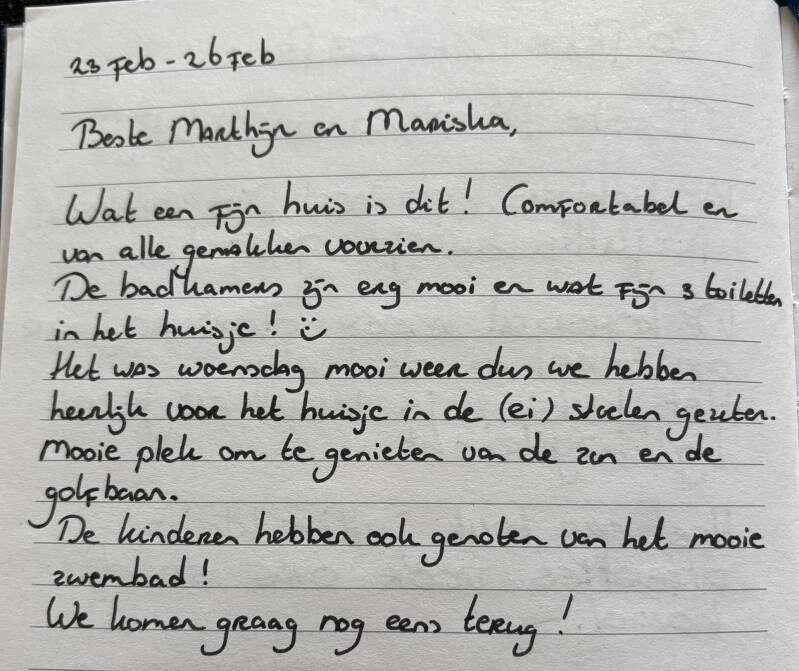 23 Feb - 26 Feb
Beste Marthijn en Mariska,
Wat een fijn huis is dit! Comfortabel en
van alle gemakken voorzien.
De badkamers zijn erg mooi en wat fijn 3 toiletten
in het huisje! :)
Het was woensdag mooi weer dus we hebben
heerlijk voor het huisje in de (ei) stoelen gezeten.
Mooie plek om te genieten van de zon en de
golfbaan.
De kinderen hebben ook genoten van het mooie
zwembad!
We komen graag nog eens terug!